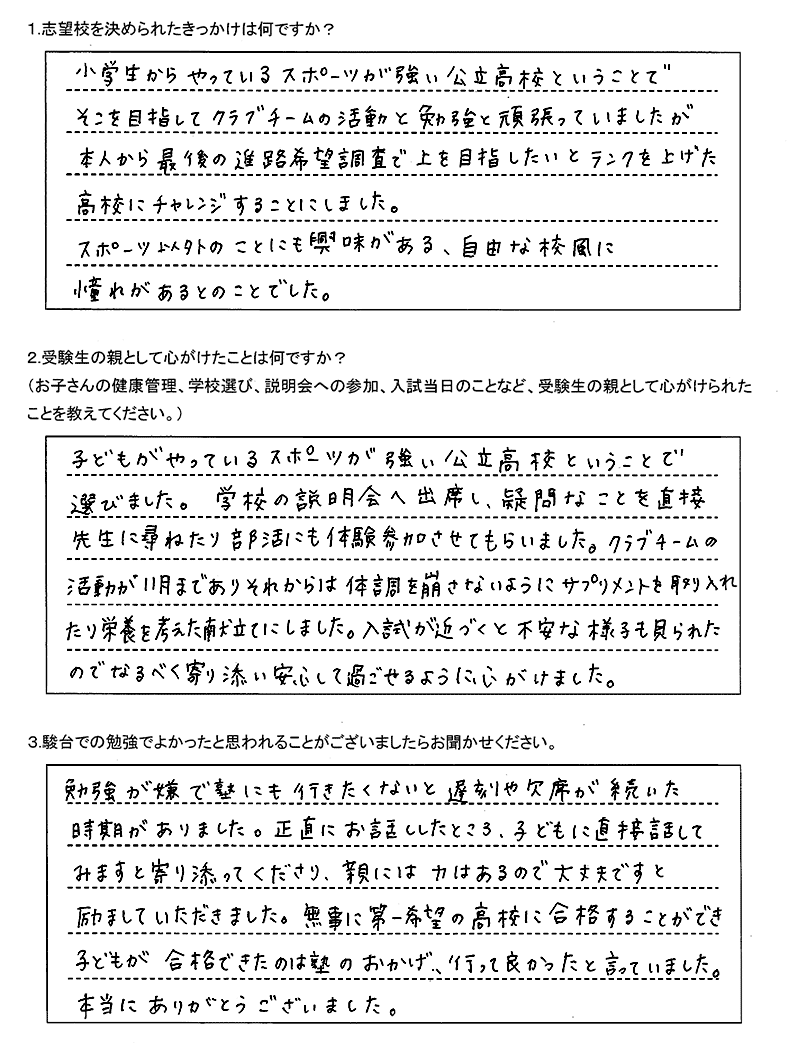 1.志望校を決められたきっかけは何ですか？
小学生からやっているスポーツが強い公立高校ということで
そこを目指してクラブチームの活動と勉強と頑張っていましたが
本人から最後の進路希望調査で上を目指したいとランクを上げた
高校にチャレンジすることにしました。
スポーツ以外のことにも興味がある、自由な校風に
憧れがあるとのことでした。
2.受験生の親として心がけたことは何ですか？
（お子さんの健康管理、学校選び、説明会への参加、入試当日のことなど、受験生の親として心がけられた
ことを教えてください。）
子どもがやっているスポーツが強い公立高校ということで
選びました。学校の説明会へ出席し、疑問なことを直接
先生に尋ねたり部活にも体験参加させてもらいました。クラブチームの
活動が11月までありそれからは体調を崩さないようにサプリメントを取り入れ
たり栄養を考えた献立てにしました。入試が近づくと不安な様子も見られた
のでなるべく寄り添い安心して過ごせるように心がけました。
3.駿台での勉強でよかったと思われることがございましたらお聞かせください。
勉強が嫌で塾にも行きたくないと遅刻や欠席が続いた
時期がありました。正直にお話ししたところ、子どもに直接話して
みますと寄り添ってくださり、親には力はあるので大丈夫ですと
励ましていただきました。無事に第一希望の高校に合格することができ
子どもが合格できたのは塾のおかげ、行って良かったと言っていました。
本当にありがとうございました。